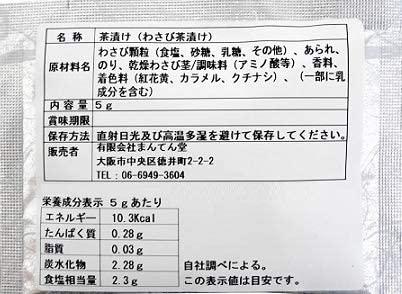 名 称 茶漬け（わさび茶漬け）
原材料名 わさび顆粒（食塩、砂糖、乳糖、その他）、あられ、
のり、乾燥わさび茎/調味料（アミノ酸等）、香料、
着色料（紅花黄、カラメル、クチナシ）、（一部に乳
成分を含む）
内 容 量 5ｇ
賞味期限
保存方法 直射日光及び高温多湿を避けて保存してください。
販売者 有限会社まんてん堂
大阪市中央区徳井町2-2-2
TEL：06-6949-3604
栄養成分表示 5ｇあたり
エネルギー 10.3Kcal
たんぱく質 0.28g
脂質 0.03g
炭水化物 2.28g
食塩相当量 2.3g
自社調べによる。
この表示値は目安です。